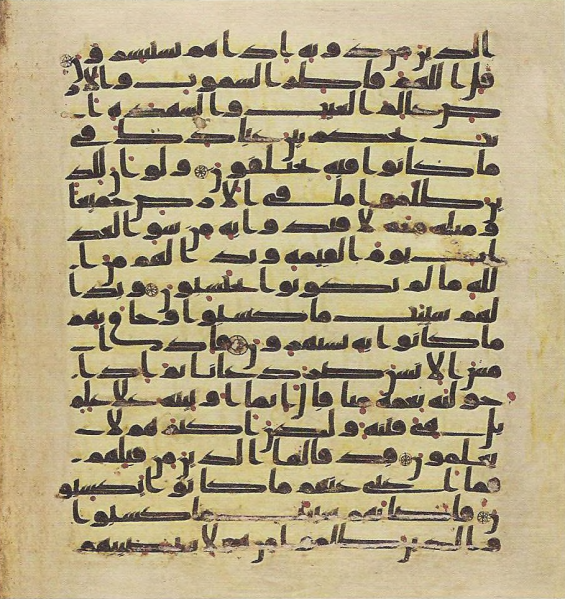 الذين من دونه اذا هم يستبشرون
قل اللهم فاطر السموت والا
رض علم الغيب والشهدة ا
نت تحكم بين عبادك في
ما كانوا فيه يختلفون ولو ان للذ
ين ظلموا ما في الارض جميعا
ومثله معه لافتدوا به من سو العذ
اب يوم القيمة وبدا لهم من ا
لله ما لم يكونوا يحتسبون وبدا
لهم سيات ما كسبوا وحاق بهم
ما كانوا به يستهزون فاذا
مس الانسن ضر دعانا ثم اذا
خولنه نعمة منا قال انما اوتيته على علم
بل هي فتنة ولكن اكثرهم لا
يعلمون قد قالها الذين من قبلهم
فما اغنى عنهم ما كانوا يكسبو
ن فاصابهم سيات ما كسبوا
والذين ظلموا من هولا سيصيبهم